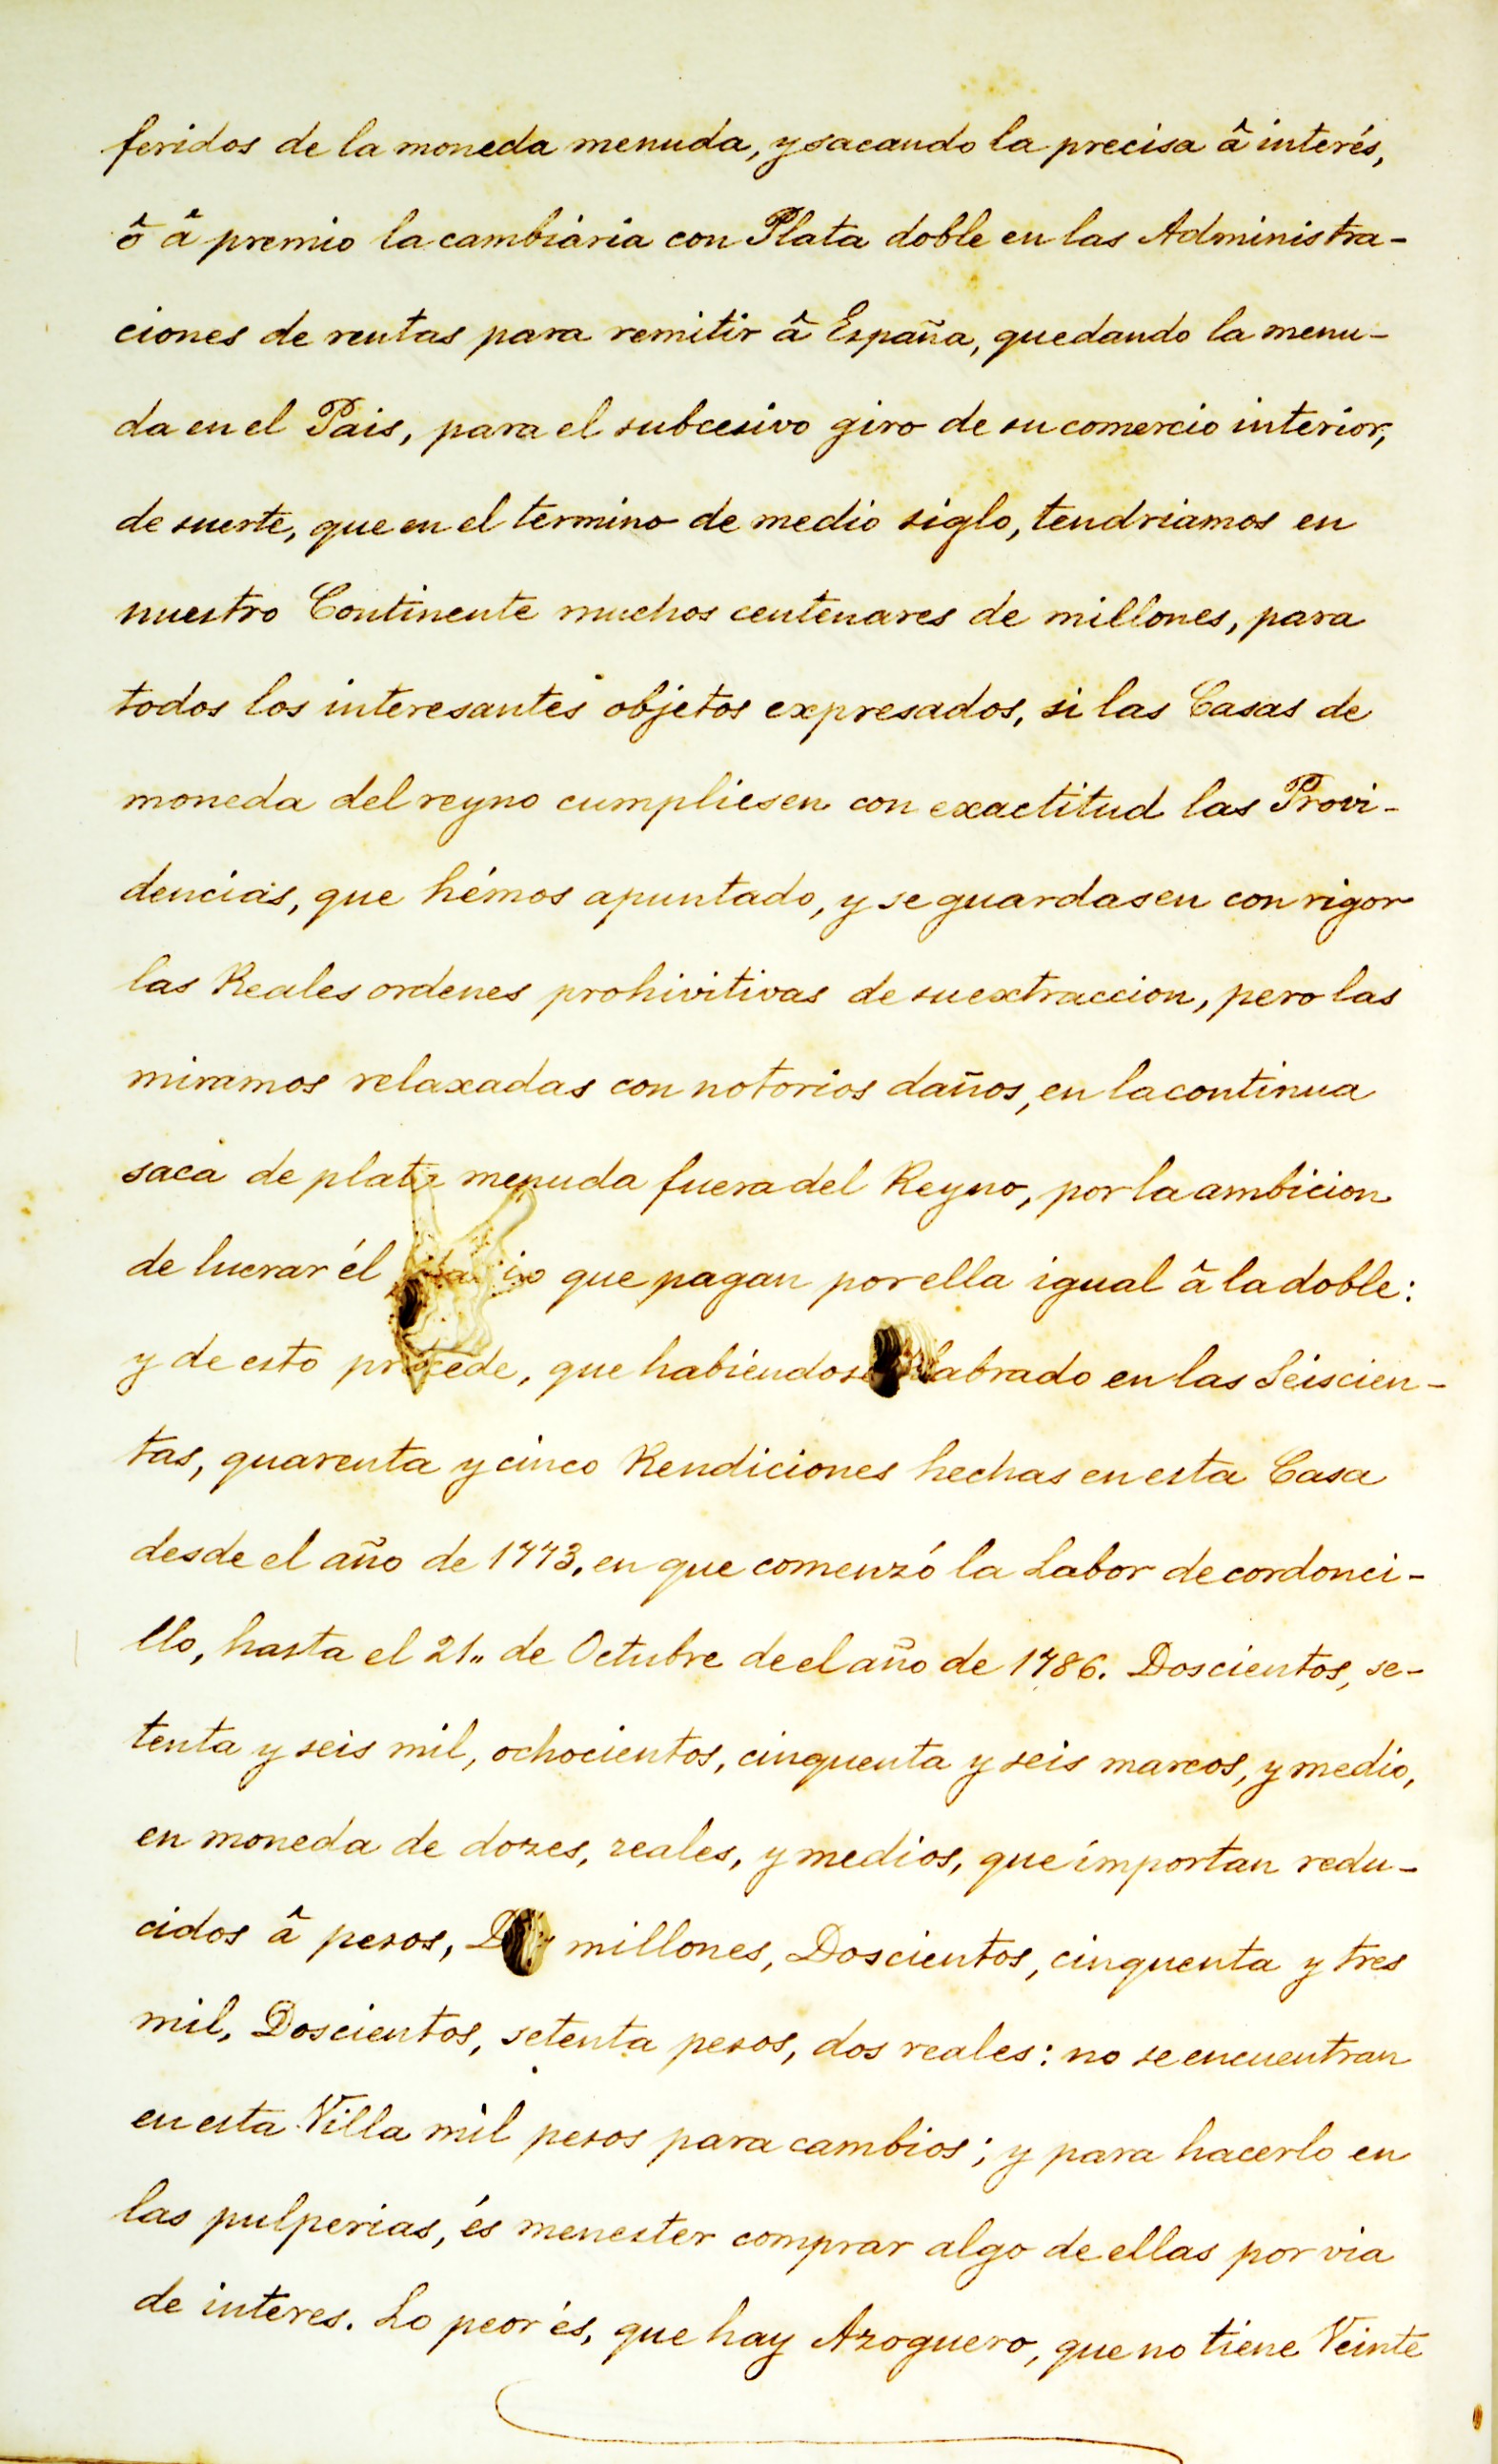 feridos de la moneda menuda, y sacando la precisa â interés,
ô â premio la cambiaria con Plata doble en las Administra-
ciones de rentas para remitir â España, quedando la menu-
da en el Pais, para el subcesivo giro de su comercio interior,
de suerte, que en el termino de medio siglo, tendriamos en
nuestro Continente muchos centenares de millones, para
todos los interesantes objetos expresados, si las Casas de
moneda del reyno cumpliesen con exactitud las Provi-
dencias, que hémos apuntado, y se guardasen con rigor
las Reales ordenes prohivitivas de su extraccion, pero las
miramos relaxadas con notorios daños, en la continua
saca de plata menuda fuera del Reyno, por la ambicion
de lucrar él que pagan por ella igual â la doble:
y de esto procede, que habiéndose labrado en las Seiscien-
tas, quarenta y cinco Rendiciones hechas en esta Casa
desde el año de 1773. en que comenzó la Labor de cordonci-
llo, hasta el 21,, de Octubre de el año de 1786. Doscientos, se-
tenta y seis mil, ochocientos, cinquenta y seis marcos, y medio,
en moneda de dozes, reales, y medios, que importan redu-
cidos â pesos, millones, Doscientos, cinquenta y tres
mil, Doscientos, setenta pesos, dos reales: no se encuentran
en esta Villa mil pesos para cambios; y para hacerlo en
las pulperias, és menester comprar algo de ellas por via
de interes. Lo peor és, que hay Azoguero, que no tiene Veinte